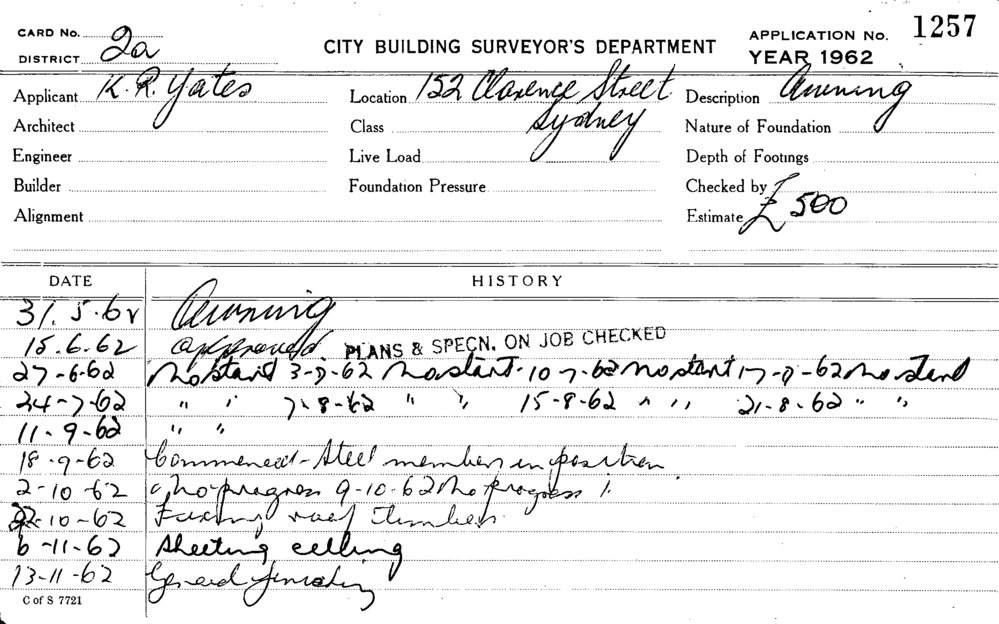 CARD No. 2a
DISTRICT
CITY BUILDING SURVEYOR'S DEPARTMENT
APPLICATION No. 1257
YEAR 1962
Applicant K. R. Yates
Location 152 Clarence Street
Sydney
Description Awning
Architect
Class
Nature of Foundation
Engineer
Live Load
Depth of Footings
Builder
Foundation Pressure
Checked by
Alignment
Estimate £ 500
DATE HISTORY
31.5.62 Awning
15.6.62 approved. PLANS & SPECN. ON JOB CHECKED
27-6-62 No start 3-7-62 No start - 10-7-62 No start 17-7-62 No start
24-7-62 " " 7-8-62 " " 15-8-62 " " 21-8-62 " "
11-9-62 " "
18-9-62 Commenced - Steel members in position
2-10-62 No progress 9-10-62 No progress
22-10-62 Fixing roof timbers
6-11-62 Sheeting ceiling
13-11-62 General finishing
C of S 7721